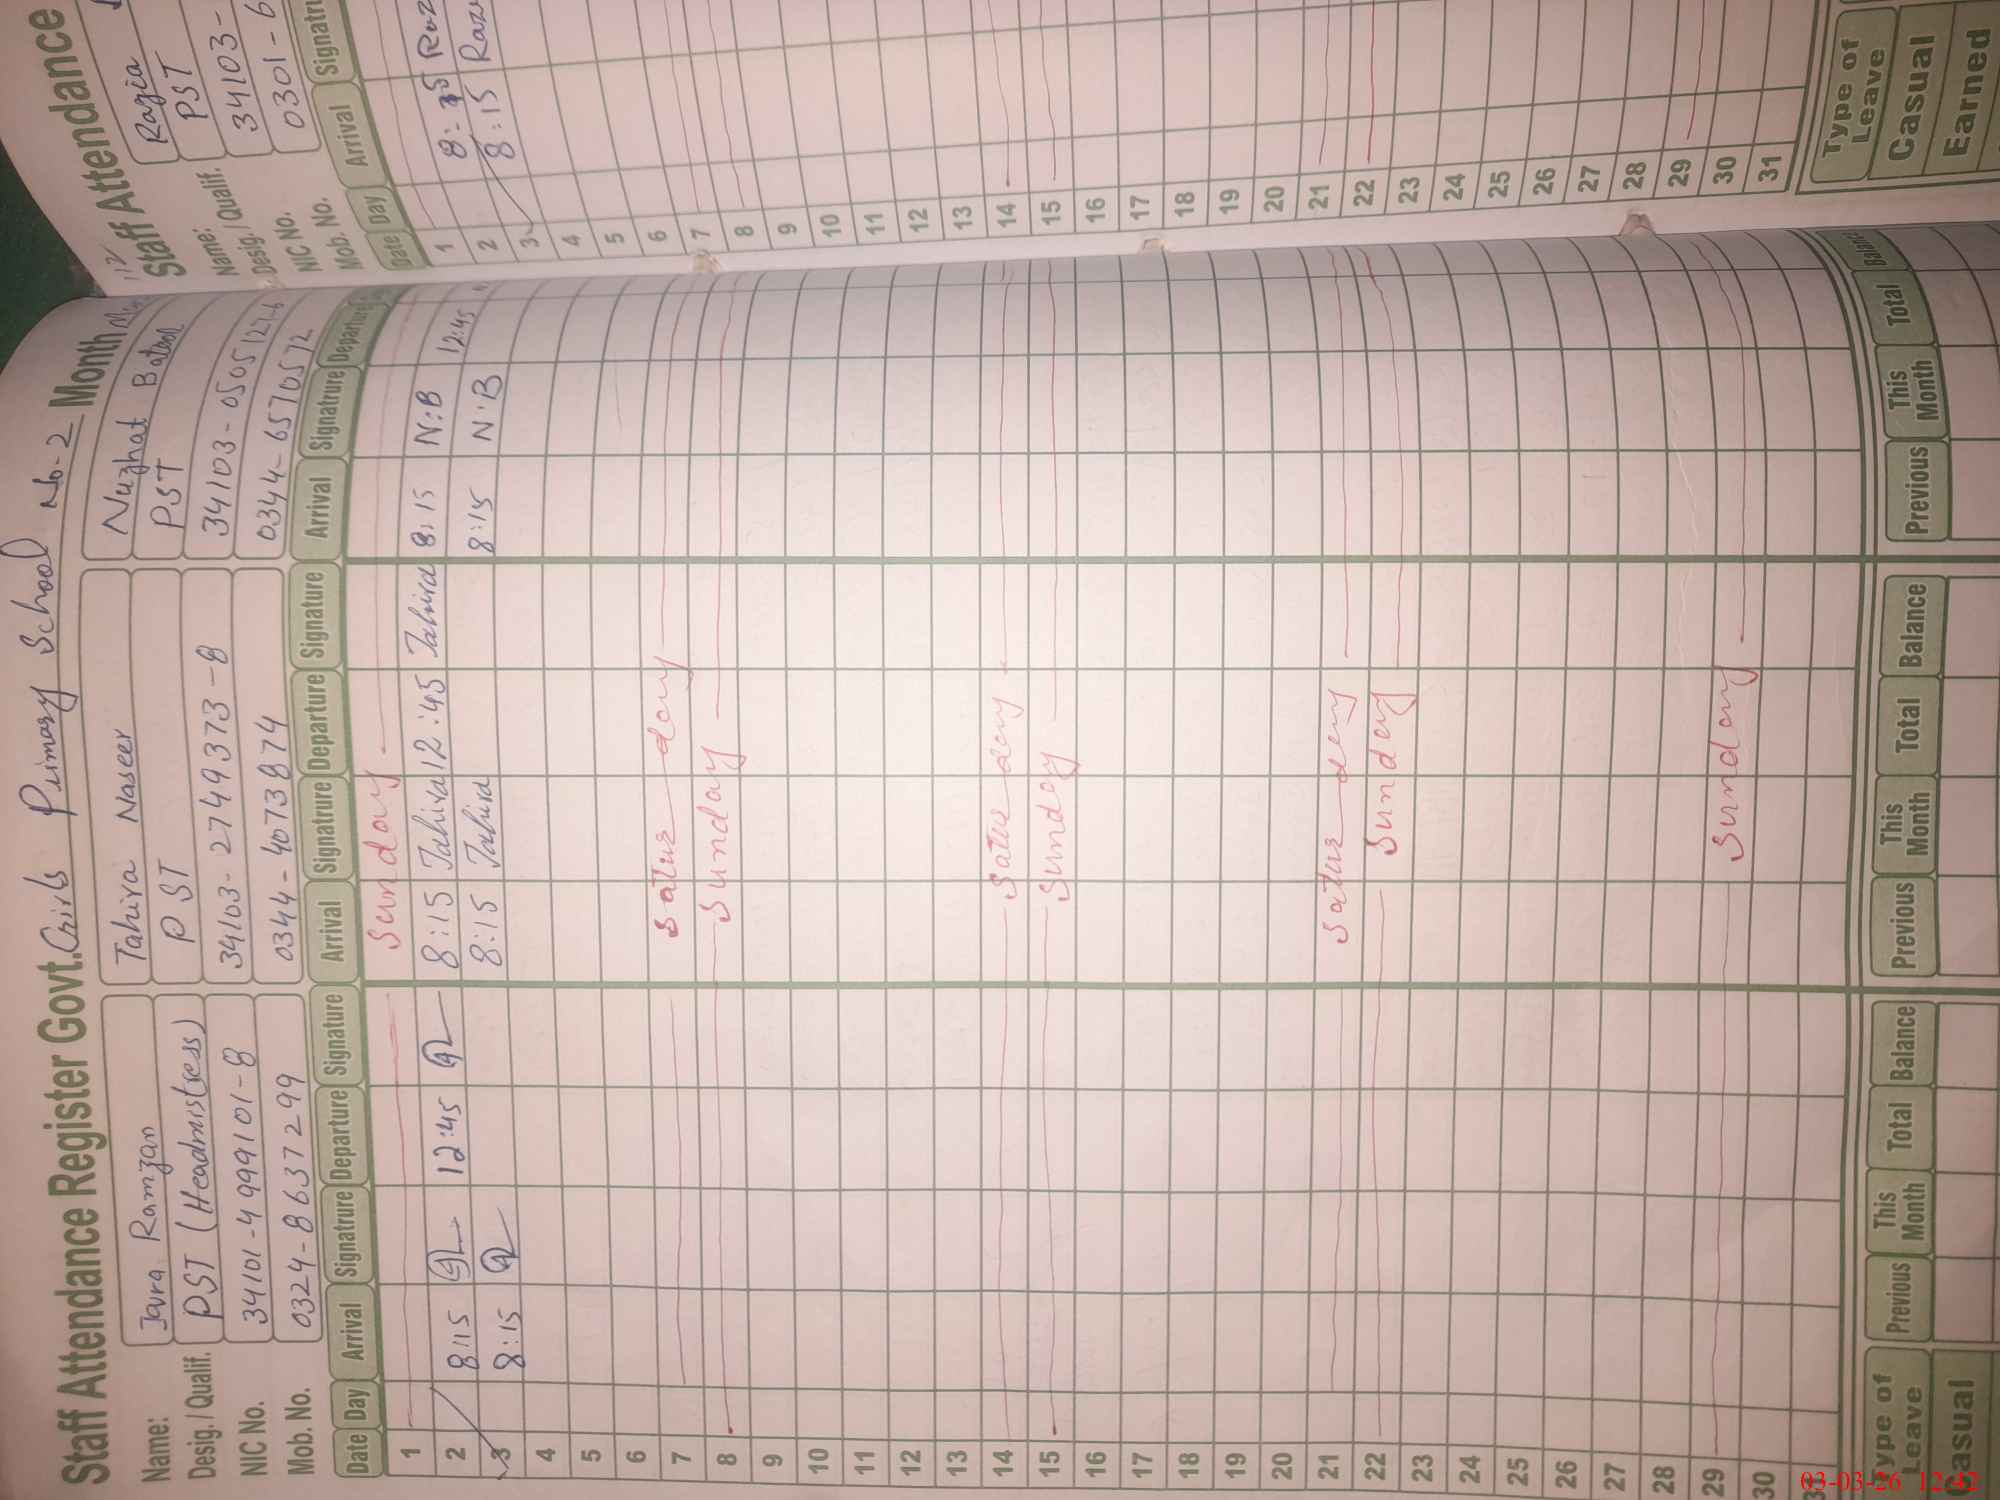 Staff Attendance Register Govt. Girls Primary School No-2 Month
Name: Javra Ramzan Tahira Naseer Nuzhat Batool
Desig. / Qualif. PST (Headmistress) PST PST
NIC No. 34101-4999101-8 34103-2749373-8 34103-0505127-6
Mob. No. 0324-8637299 0344-4073874 0344-6570572
Date Day Arrival Signatrure Departure Signature Arrival Signatrure Departure Signature Arrival Signatrure Departure
1 Sunday
2 8:15 12:45 8:15 Tahira 12:45 Tahira 8:15 N:B 12:45
3 8:15 8:15 Tahira 8:15 N:B
4
5
6
7 Saturday
8 Sunday
9
10
11
12
13
14 Saturday
15 Sunday
16
17
18
19
20
21 Saturday
22 Sunday
23
24
25
26
27
28
29 Sunday
30
31
Type of Leave Previous This Month Total Balance Previous This Month Total Balance Previous This Month Total Balance
Casual
Staff Attendance
Name: Razia
Desig. / Qualif. PST
NIC No. 34103-
Mob. No. 0301-6
Date Day Arrival Signatr
1
2
3 8:15
4
5
6
7
8
9
10
11
12
13
14
15
16
17
18
19
20
21
22
23
24
25
26
27
28
29
30
31
Type of Leave
Casual
Earned
03-03-26 12:42